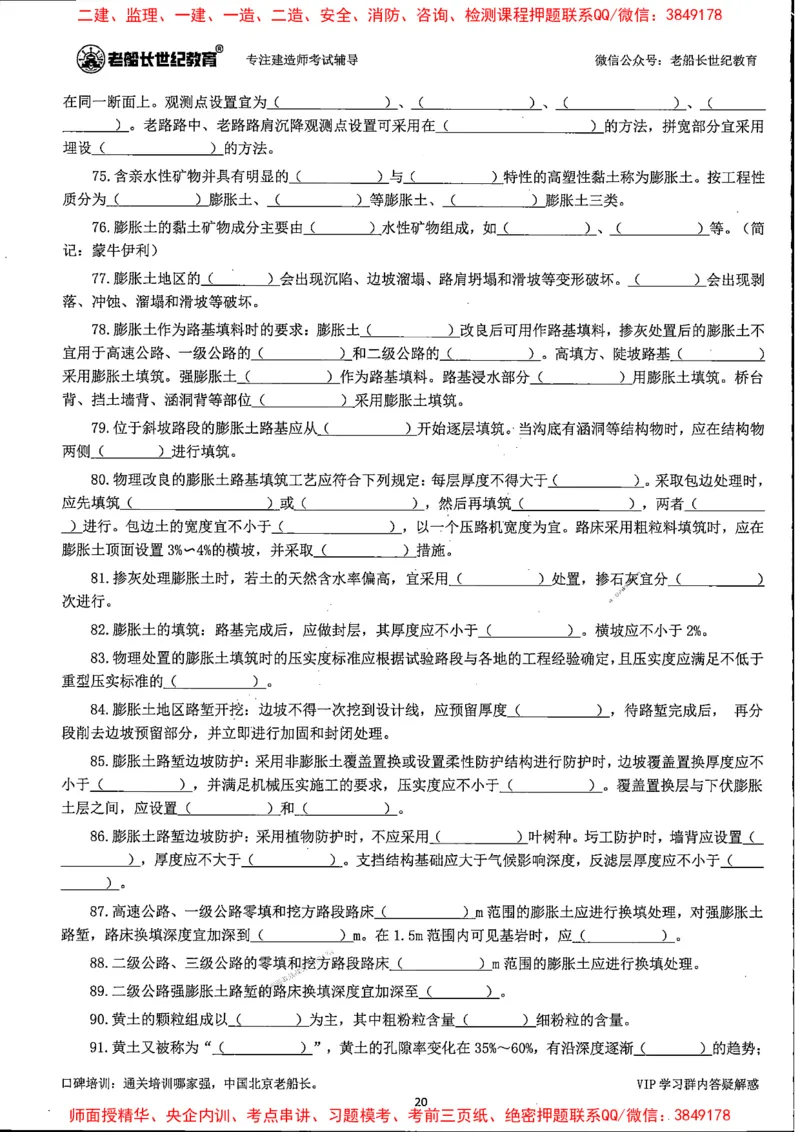 二建、监理、一建、一造、二造、安全、消防、咨询、检测课程押题联系QQ/微信：3849178
老船长世纪教育® 专注建造师考试辅导 微信公众号：老船长世纪教育
在同一断面上。观测点设置宜为（ ）、（ ）、（ ）、（
）。老路路中、老路路肩沉降观测点设置可采用在（ ）的方法，拼宽部分宜采用
埋设（ ）的方法。
75.含亲水性矿物并具有明显的（ ）与（ ）特性的高塑性黏土称为膨胀土。按工程性
质分为（ ）膨胀土、（ ）等膨胀土、（ ）膨胀土三类。
76.膨胀土的黏土矿物成分主要由（ ）水性矿物组成，如（ ）、（ ）等。（简
记：蒙牛伊利）
77.膨胀土地区的（ ）会出现沉陷、边坡溜塌、路肩坍塌和滑坡等变形破坏。（ ）会出现剥
落、冲蚀、溜塌和滑坡等破坏。
78.膨胀土作为路基填料时的要求：膨胀土（ ）改良后可用作路基填料，掺灰处置后的膨胀土不
宜用于高速公路、一级公路的（ ）和二级公路的（ ）。高填方、陡坡路基（ ）
采用膨胀土填筑。强膨胀土（ ）作为路基填料。路基浸水部分（ ）用膨胀土填筑。桥台
背、挡土墙背、涵洞背等部位（ ）采用膨胀土填筑。
79.位于斜坡路段的膨胀土路基应从（ ）开始逐层填筑。当沟底有涵洞等结构物时，应在结构物
两侧（ ）进行填筑。
80.物理改良的膨胀土路基填筑工艺应符合下列规定：每层厚度不得大于（ ）。采取包边处理时，
应先填筑（ ）或（ ），然后再填筑（ ），两者（
）进行。包边土的宽度宜不小于（ ），以一个压路机宽度为宜。路床采用粗粒料填筑时，应在
膨胀土顶面设置3%～4%的横坡，并采取（ ）措施。
81.掺灰处理膨胀土时，若土的天然含水率偏高，宜采用（ ）处置，掺石灰宜分（ ）
次进行。
82.膨胀土的填筑：路基完成后，应做封层，其厚度应不小于（ ）。横坡应不小于2%。
83.物理处置的膨胀土填筑时的压实度标准应根据试验路段与各地的工程经验确定，且压实度应满足不低于
重型压实标准的（ ）。
84.膨胀土地区路堑开挖：边坡不得一次挖到设计线，应预留厚度（ ），待路堑完成后， 再分
段削去边坡预留部分，并立即进行加固和封闭处理。
85.膨胀土路堑边坡防护：采用非膨胀土覆盖置换或设置柔性防护结构进行防护时，边坡覆盖置换厚度应不
小于（ ），并满足机械压实施工的要求，压实度应不小于（ ）。覆盖置换层与下伏膨胀
土层之间，应设置（ ）和（ ）。
86.膨胀土路堑边坡防护：采用植物防护时，不应采用（ ）叶树种。圬工防护时，墙背应设置（
），厚度应不大于（ ）。支挡结构基础应大于气候影响深度，反滤层厚度应不小于（
）。
87.高速公路、一级公路零填和挖方路段路床（ ）m范围的膨胀土应进行换填处理，对强膨胀土
路堑，路床换填深度宜加深到（ ）m。在1.5m范围内可见基岩时，应（ ）。
88.二级公路、三级公路的零填和挖方路段路床（ ）m范围的膨胀土应进行换填处理。
89.二级公路强膨胀土路堑的路床换填深度宜加深至（ ）。
90.黄土的颗粒组成以（ ）为主，其中粗粉粒含量（ ）细粉粒的含量。
91.黄土又被称为“（ ）”，黄土的孔隙率变化在35%～60%，有沿深度逐渐（ ）的趋势；
口碑培训：通关培训哪家强，中国北京老船长。 VIP学习群内答疑解惑
20
师面授精华、央企内训、考点串讲、习题模考、考前三页纸、绝密押题联系QQ/微信：3849178